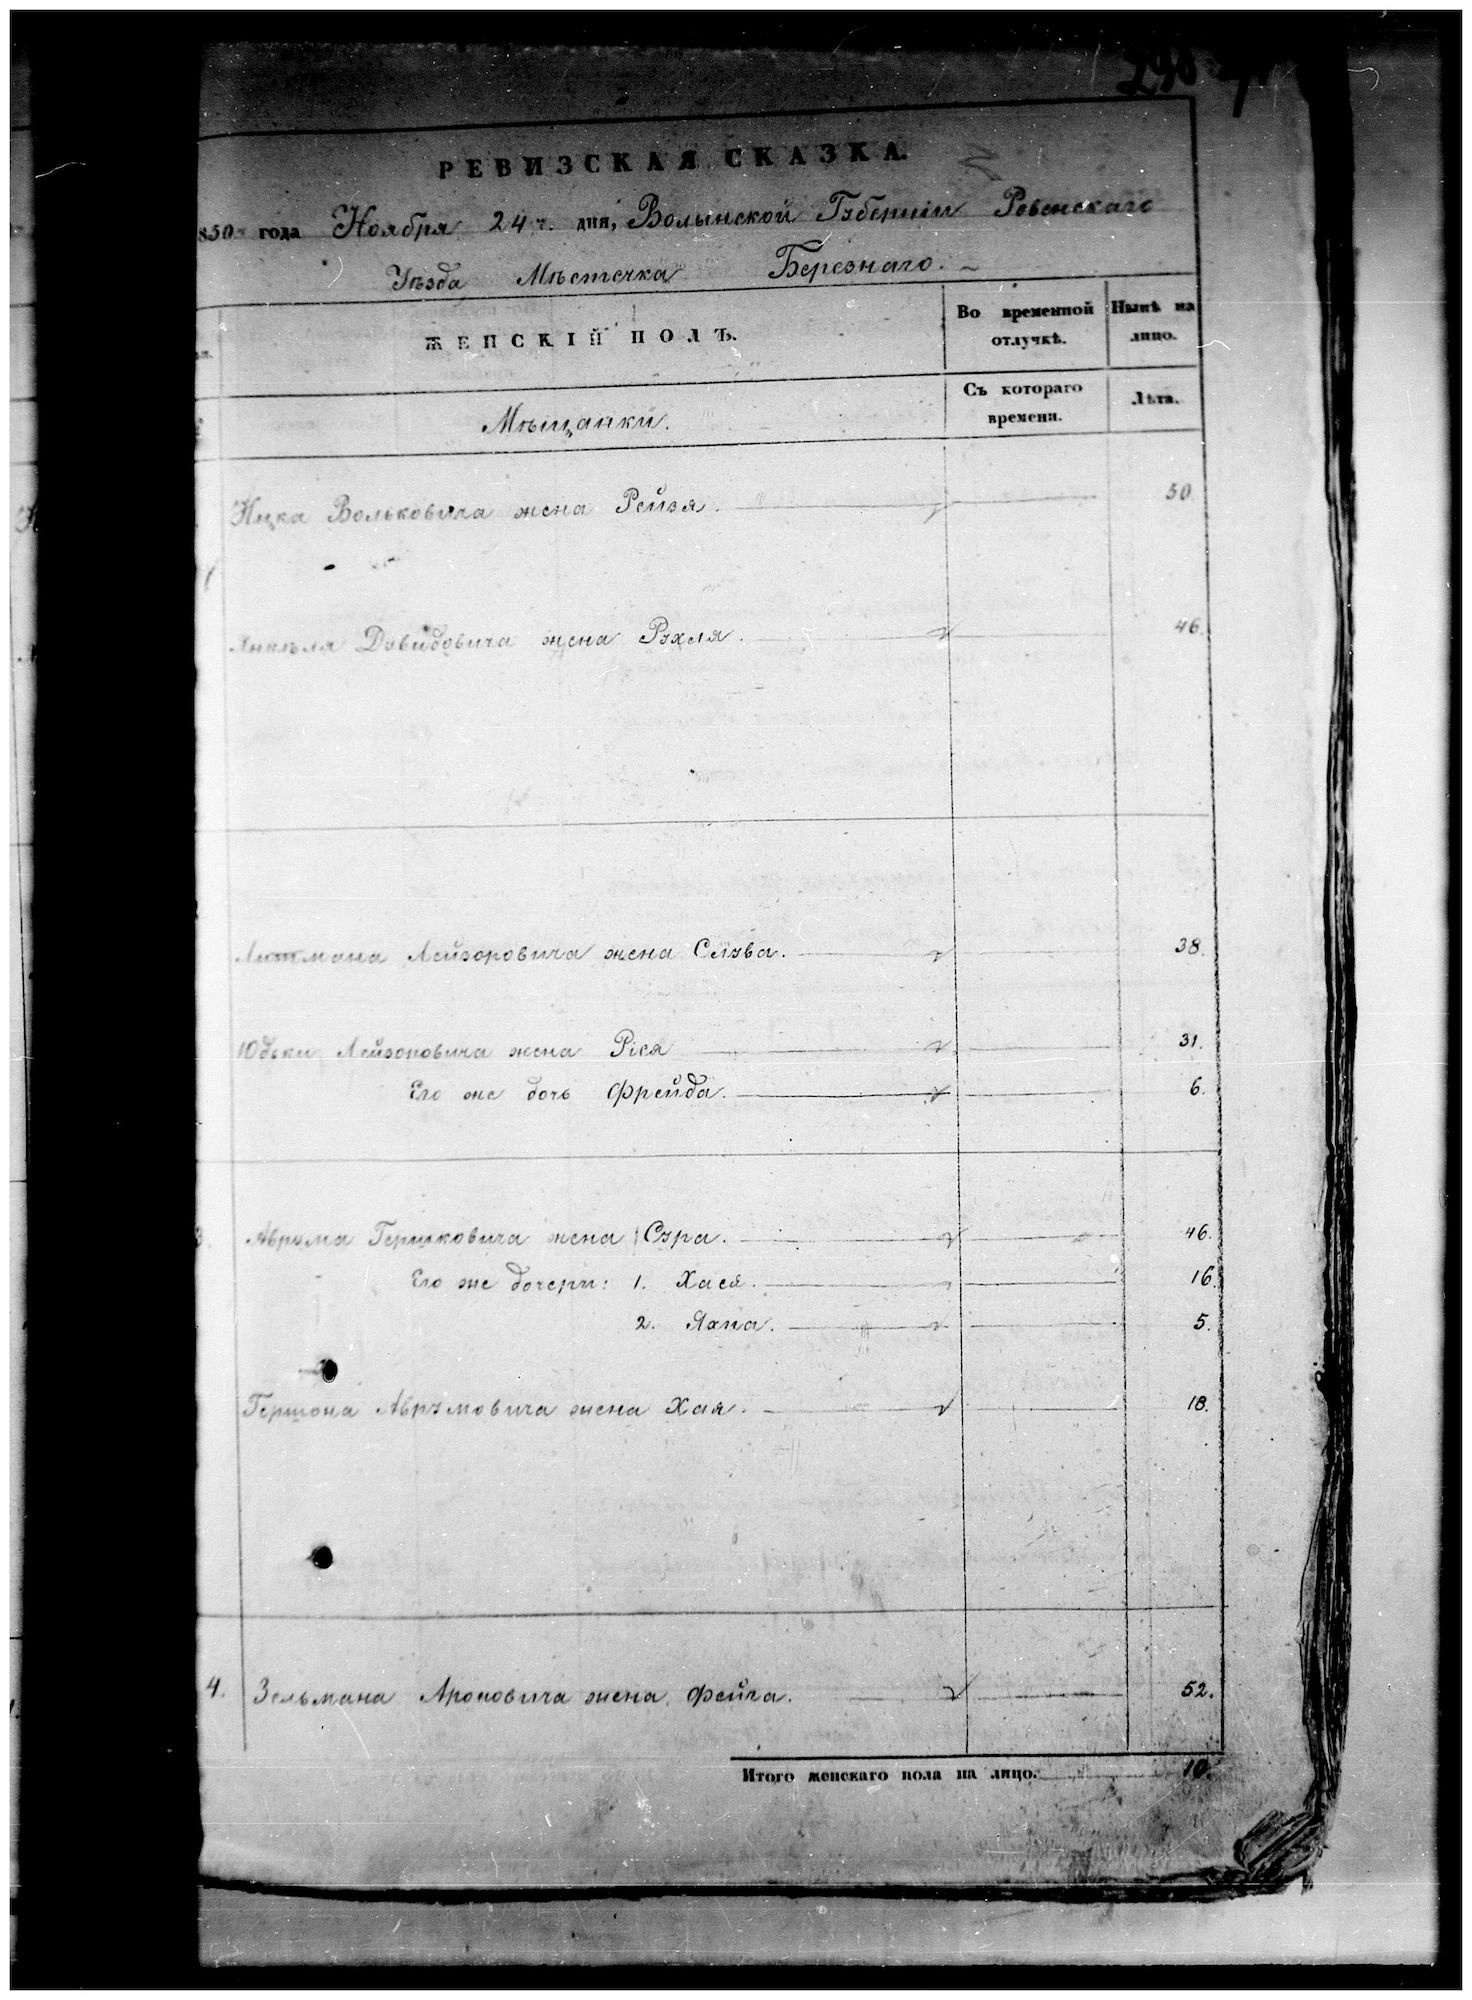 РЕВИЗСКАЯ СКАЗКА.
850 года Ноября 24 ч. дня, Волынской Губернiи Ровенскаго
Уѣзда Мѣстечка Березнаго.
ЖЕНСКIЙ ПОЛЪ.
Во временной отлучкѣ.
Нынѣ на лицо.
Мѣщанки.
Съ котораго времени.
Лѣта.
Ицка Вольковича жена Рейзя. 50.
Янкеля Дувидовича жена Рухля. 46.
Литмана Лейзоровича жена Слува. 38.
Юдьки Лейзоровича жена Рiся 31.
Его же дочь Фрейда. 6.
3. Аврума Гершковича жена Сура. 46.
Его же дочери: 1. Хася. 16.
2. Яхна. 5.
Гершона Аврумовича жена Хая. 18.
4. Зельмана Ароновича жена Фейга. 52.
Итого женскаго пола на лицо. 10.